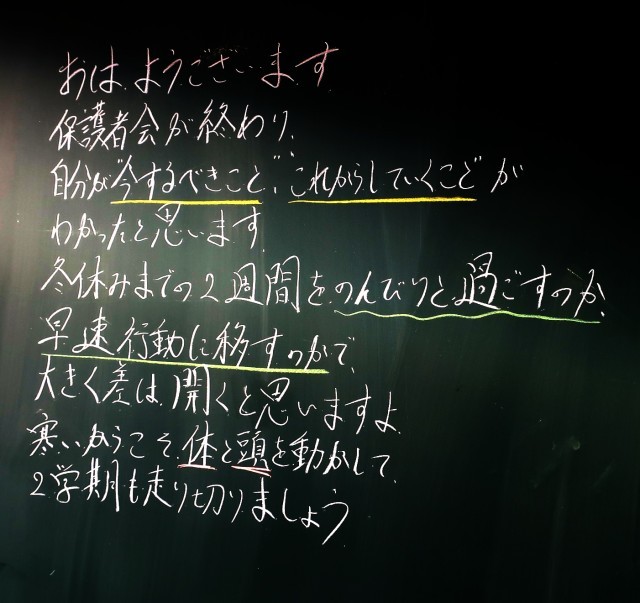 おはようございます
保護者会が終わり、
自分が"今するべきこと"、"これからしていくこと"が
わかったと思います。
冬休みまでの2週間をのんびりと過ごすのか、
早速行動に移すのかで、
大きく差は開くと思いますよ。
寒いからこそ、体と頭を動かして、
2学期も走り切りましょう